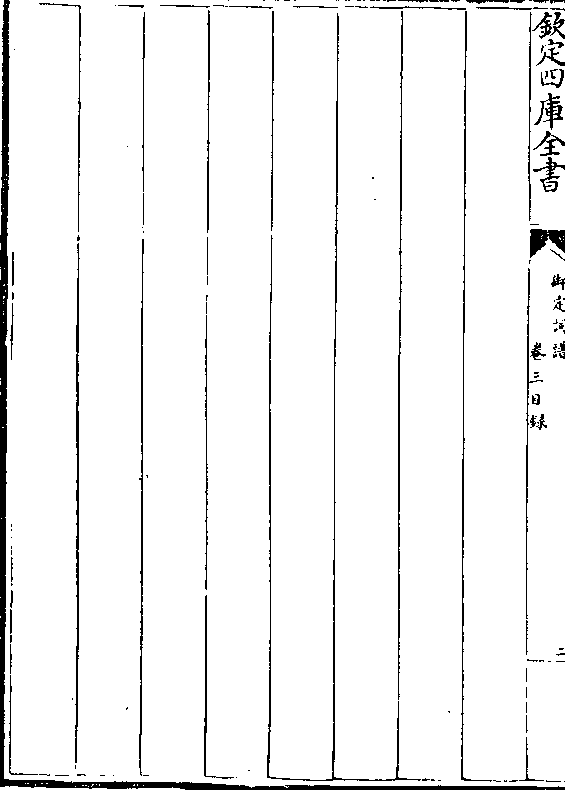 欽定四庫全書
御定詞譜
卷三目錄
二